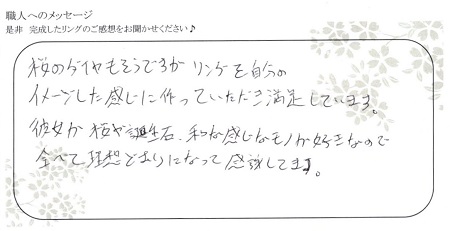 職人へのメッセージ
是非 完成したリングのご感想をお聞かせください♪
桜のダイヤもそうですが リングを自分の
イメージした感じに作っていただき満足しています。
彼女が桜や誕生石、和な感じなモノが好きなので
全べて理想どおりになって感謝してます。